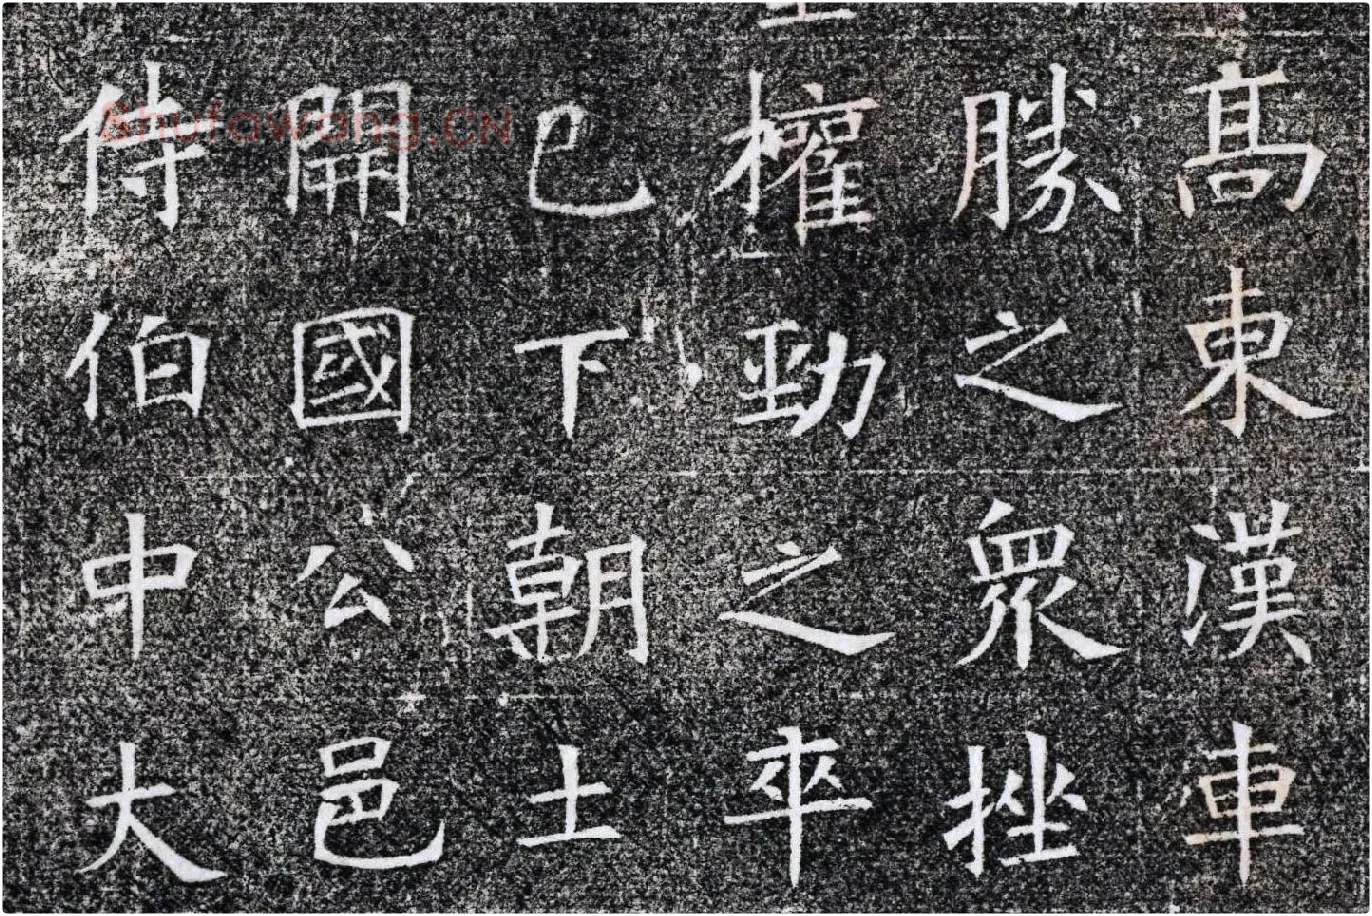 高東漢車
勝之衆挫
權勁之卒
已下朝士
開國公邑
侍伯中大
Shufawang.CN